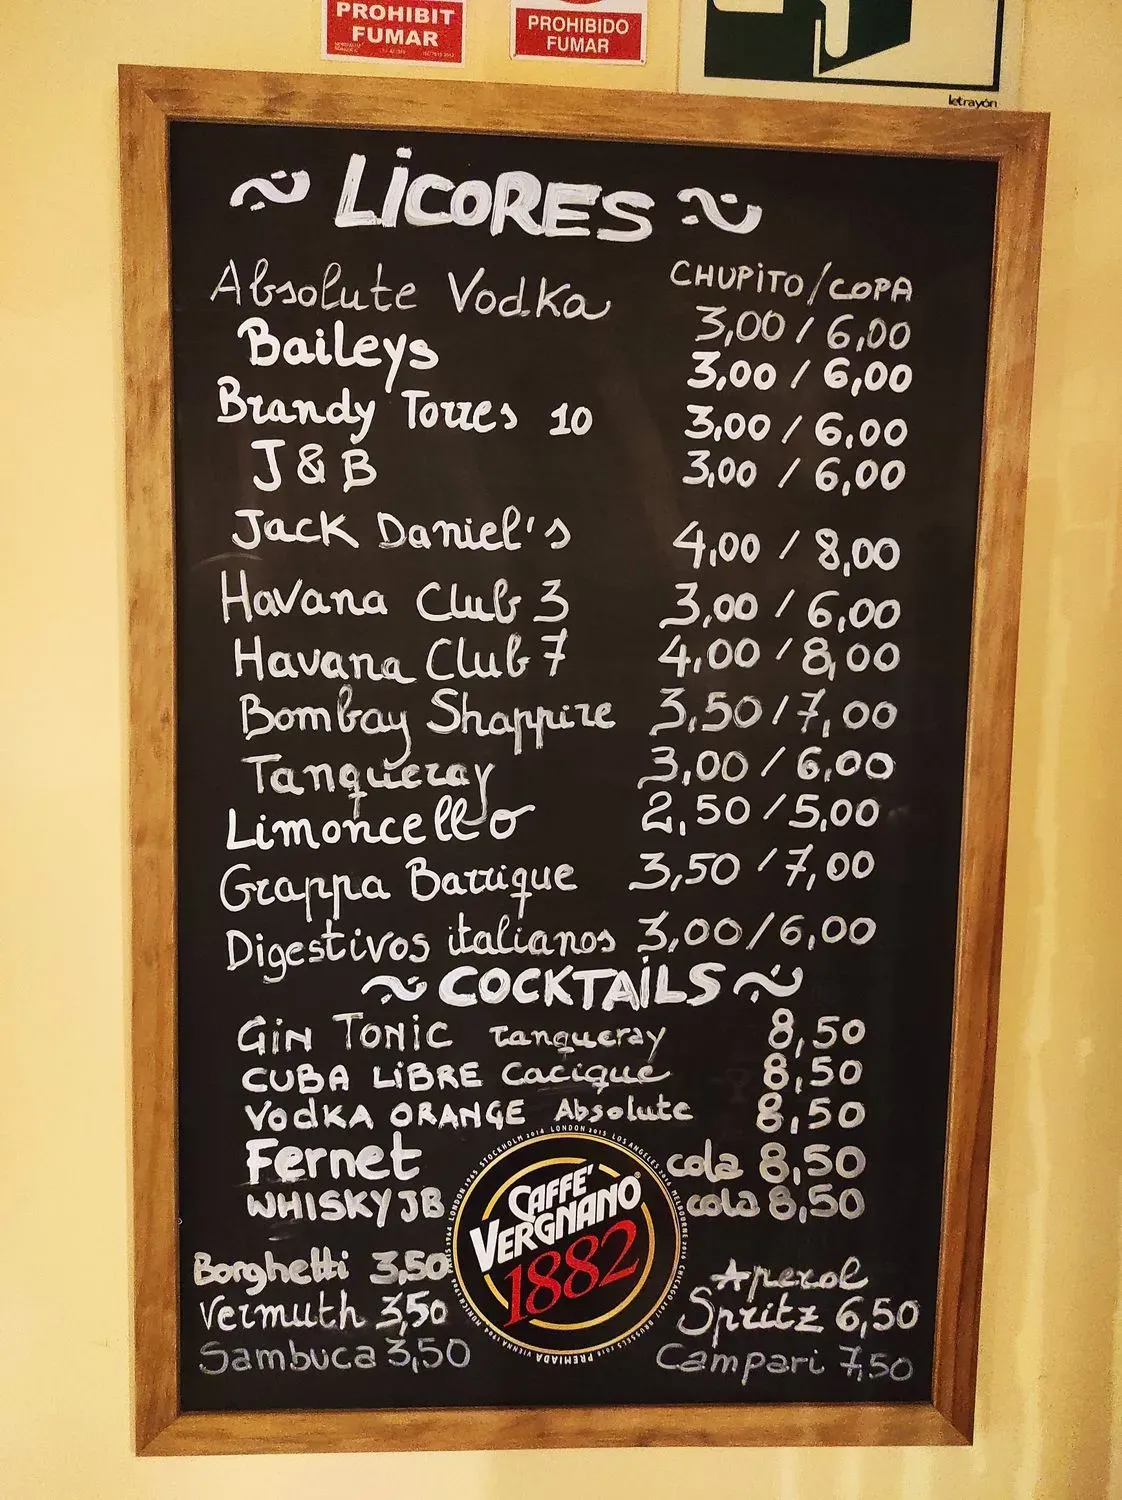 PROHIBIT
FUMAR
PROHIBIDO
FUMAR
letrayón
~ LiCORES ~
CHUPiTO/COPA
Absolute Vodka 3,00 / 6,00
Baileys 3,00 / 6,00
Brandy Torres 10 3,00 / 6,00
J & B 3,00 / 6,00
Jack Daniel's 4,00 / 8,00
Havana Club 3 3,00 / 6,00
Havana Club 7 4,00 / 8,00
Bombay Shappire 3,50 / 7,00
Tanqueray 3,00 / 6,00
Limoncello 2,50 / 5,00
Grappa Barrique 3,50 / 7,00
Digestivos italianos 3,00/6,00
~ COCKTAiLS ~
GiN TONiC Tanqueray 8,50
CUBA LiBRE Cacique 8,50
VodKA ORANGE Absolute 8,50
Fernet cola 8,50
WHISKY JB cola 8,50
CAFFÈ
VERGNANO
1882
Borghetti 3,50
Vermuth 3,50
Sambuca 3,50
Aperol
Spritz 6,50
Campari 7,50